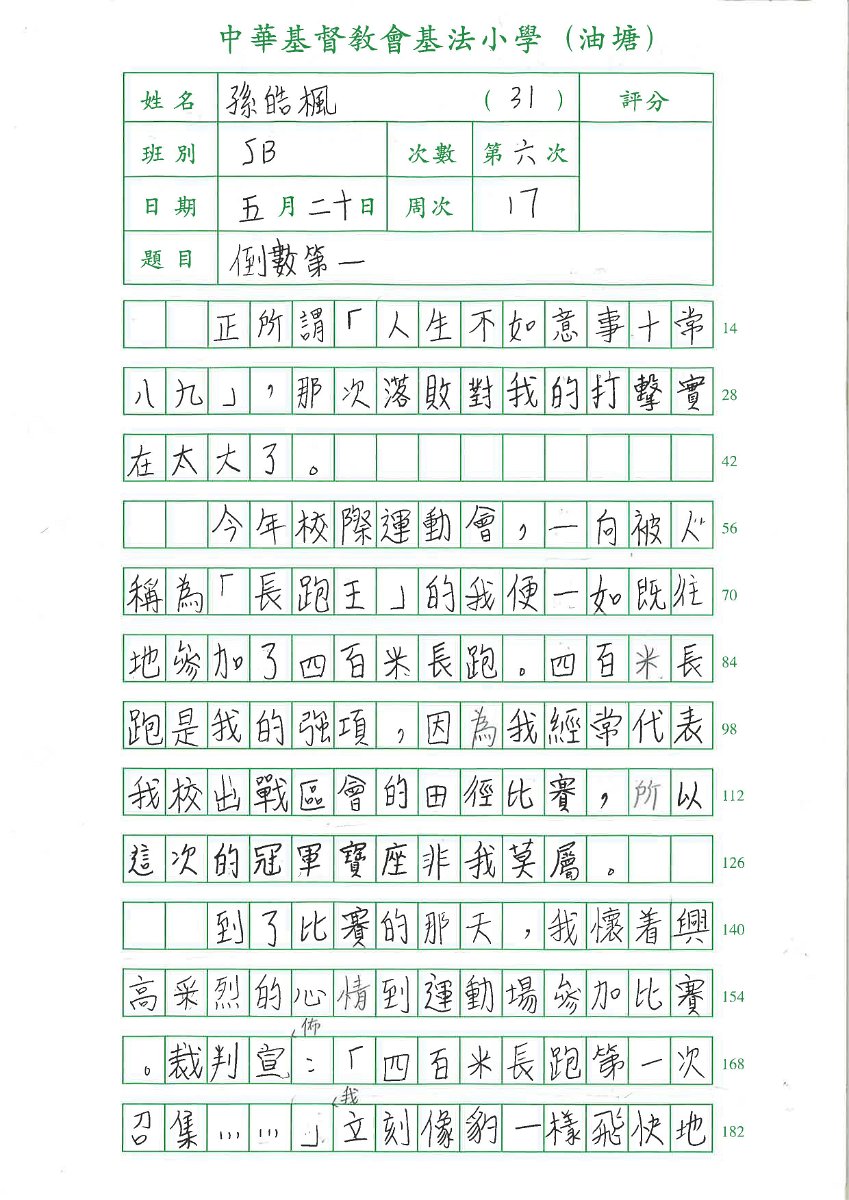 中華基督教會基法小學（油塘）
姓名 孫皓楓 （31） 評分
班別 5B 次數 第六次
日期 五月二十日 周次 17
題目 倒數第一
正所謂「人生不如意事十常 14
八九」，那次落敗對我的打擊實 28
在太大了。 42
今年校際運動會，一向被人 56
稱為「長跑王」的我便一如既往 70
地參加了四百米長跑。四百米長 84
跑是我的強項，因為我經常代表 98
我校出戰區會的田徑比賽，所以 112
這次的冠軍寶座非我莫屬。 126
到了比賽的那天，我懷着興 140
高采烈的心情到運動場參加比賽 154
。裁判宣佈：「四百米長跑第一次 168
召集……」我立刻像豹一樣飛快地 182